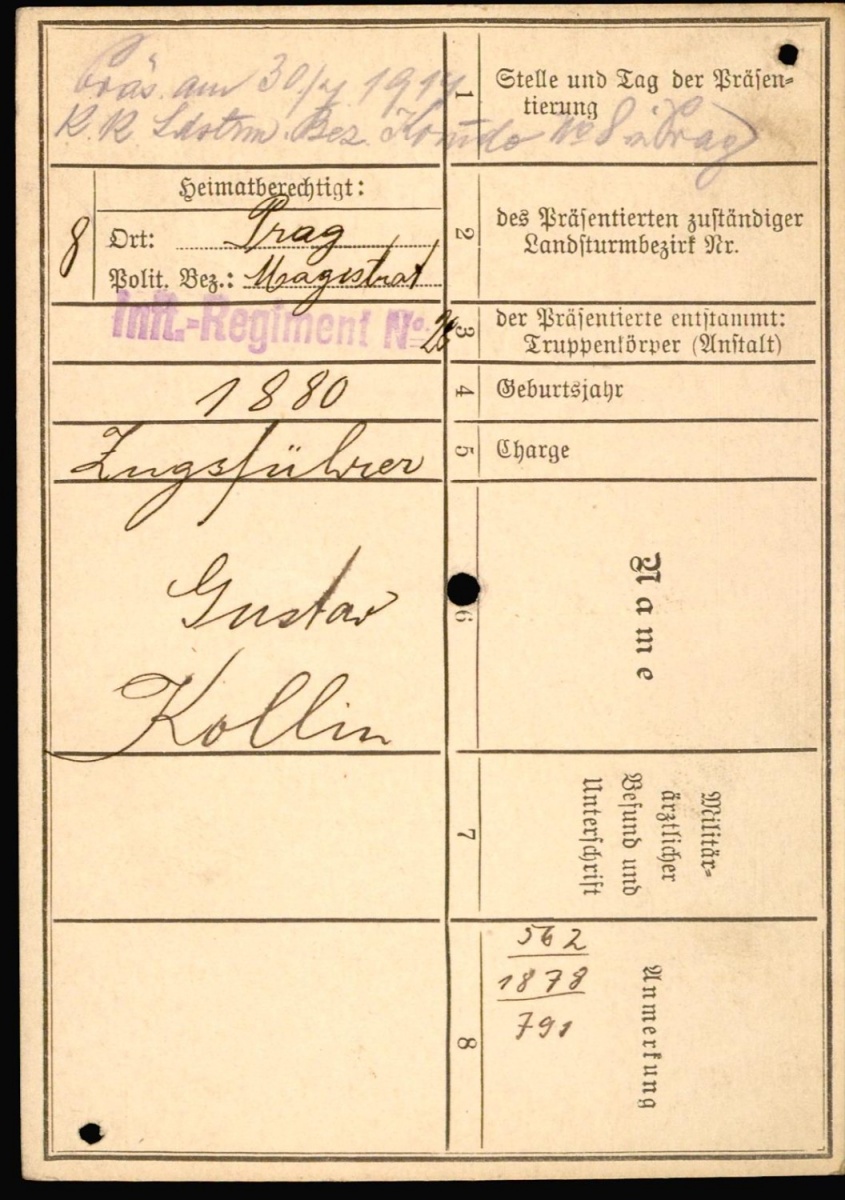 Präs. am 30/7 1914
K.K Ldstrm. Bez. Komdo No 8 in Prag
1
Stelle und Tag der Präsen=
tierung
8
Heimatberechtigt:
Ort: Prag
Polit. Bez.: Magistrat
2
des Präsentierten zuständiger
Landsturmbezirk Nr.
Inft.-Regiment No. 28
3
der Präsentierte entstammt:
Truppenkörper (Anstalt)
1880
4
Geburtsjahr
Zugsführer
5
Charge
Gustav
Kollin
6
Name
7
Militär=
ärztlicher
Befund und
Unterschrift
8
562
1878
791
Anmerkung